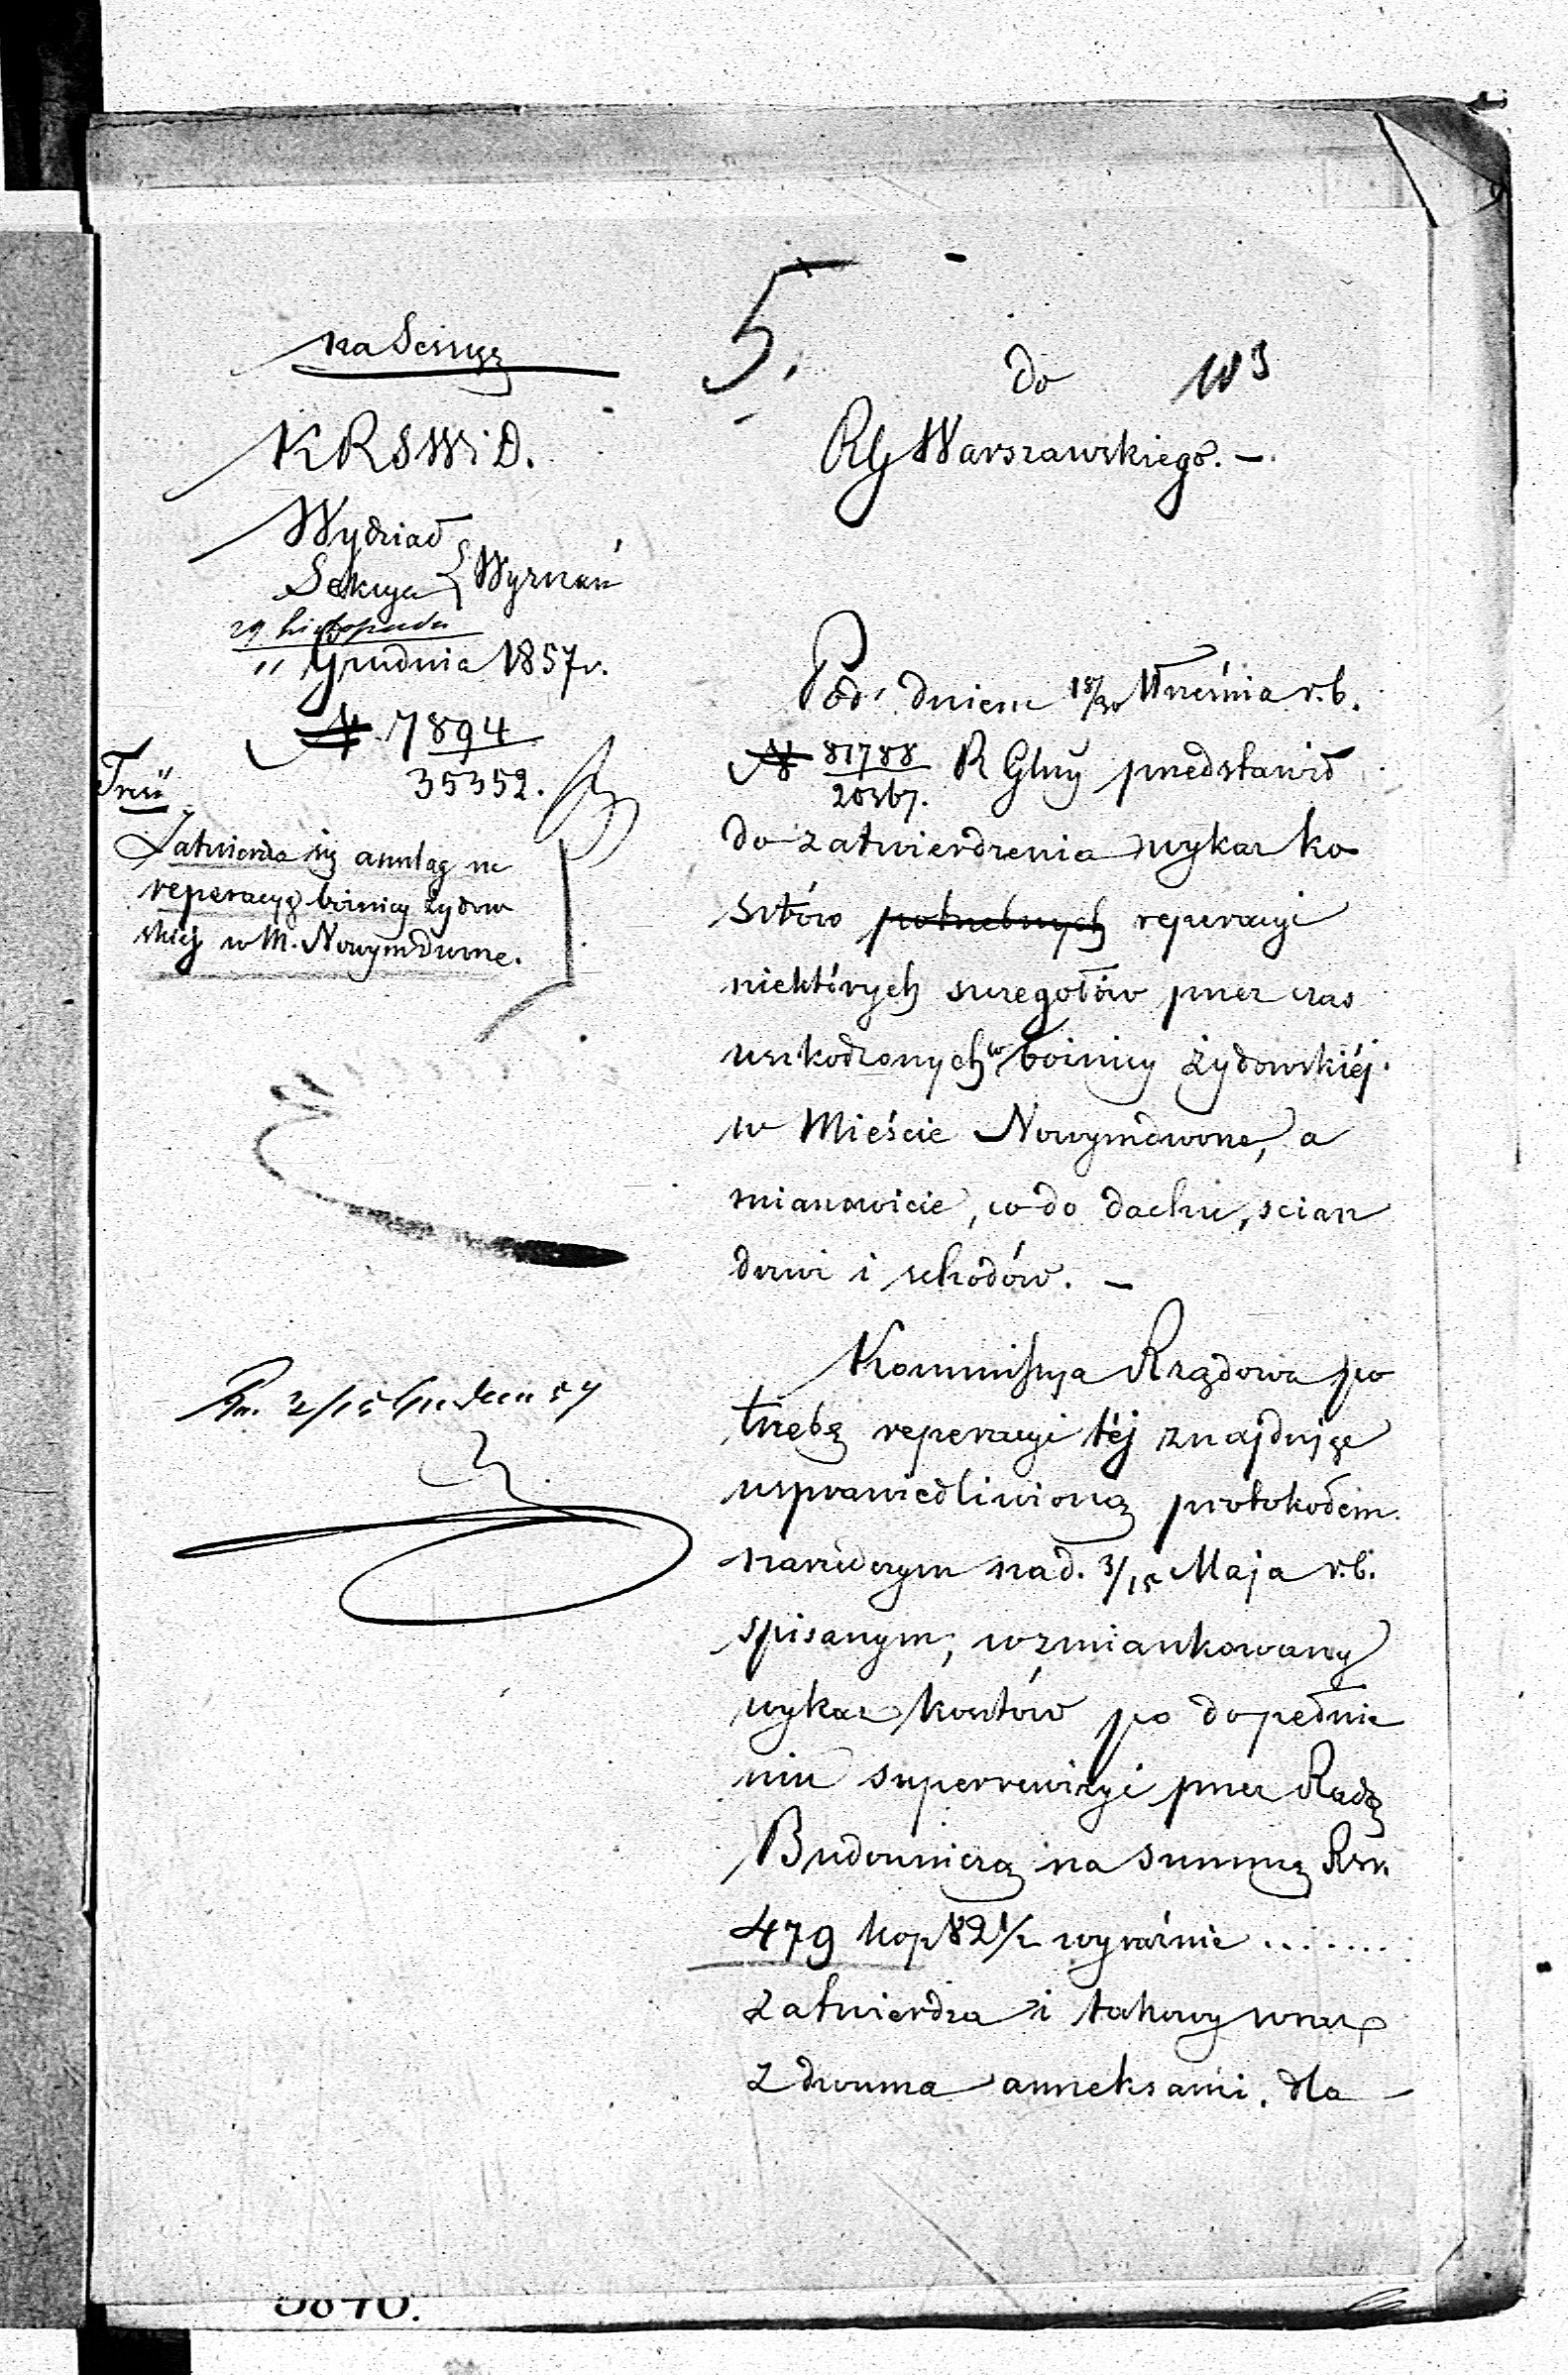 5.
na Sessyę
KRSWiD.
Wydział
Sekcya } Wyznań
29 Listopada
" Grudnia 1857 r.
№ 7894
35352.
Treść
Zatwierdza się anszlag na
reperacyę bóżnicy żydow
skiej w M. Nowymdworze.
do
103
RG Warszawskiego. —
Pod dniem 18/30 Września r.b.
№ 81788 R Glny przedstawił
20367.
do zatwierdzenia wykaz ko
sztów potrzebnych reperacyi
niektórych szczegółów przez czas
uszkodzonych w bóżnicy żydowskiéj
w Mieście Nowymdworze, a
mianowicie, co do dachu, scian
drzwi i schodów. —
Kommissya Rządowa po
trzebę reperacyi téj znajdując
usprawiedliwioną protokołem
nawidczym na d. 3/15 Maja r.b.
spisanym, wzmiankowany
wykaz kosztów po dopełnie
niu superrewizyi przez Radę
Budowniczą na summę Rsr.
479 kop 82 1/2 wyraźnie .......
zatwierdza i takowy wraz
z dwoma anneksami, dla